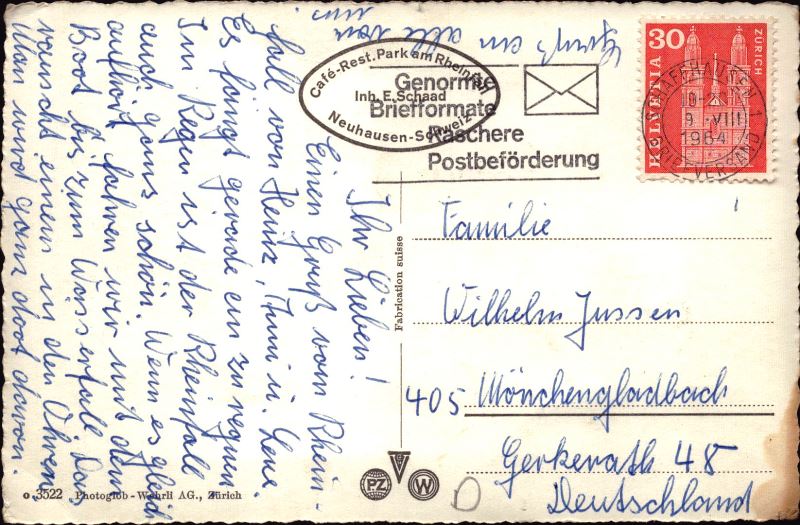 Ihr Lieben!
Einen Gruß vom Rhein-
fall von Heinz, u. Lene.
Es fängt gerade an zu regnen
Im Regen ist der Rheinfall
auch ganz schön. Wenn es gleich
aufhört fahren wir mit dem
Boot bis zum Wasserfall. Das
rauscht einem in den Ohren
Man wird ganz doof davon.
an alle von
uns
Café-Rest. Park am Rheinfall
Inh. E. Schaad
Neuhausen-Schweiz
Genormte
Briefformate
Raschere
Postbeförderung
30
ZÜRICH
HELVETIA
SCHAFFHAUSEN 1
9. VIII
1964
BRIEFVERSAND
Familie
Wilhelm Jussen
405 Mönchengladbach
Gerkerath 48
Deutschland
Fabrication suisse
o 3522 Photoglob-Wehrli AG., Zürich
PZ
W